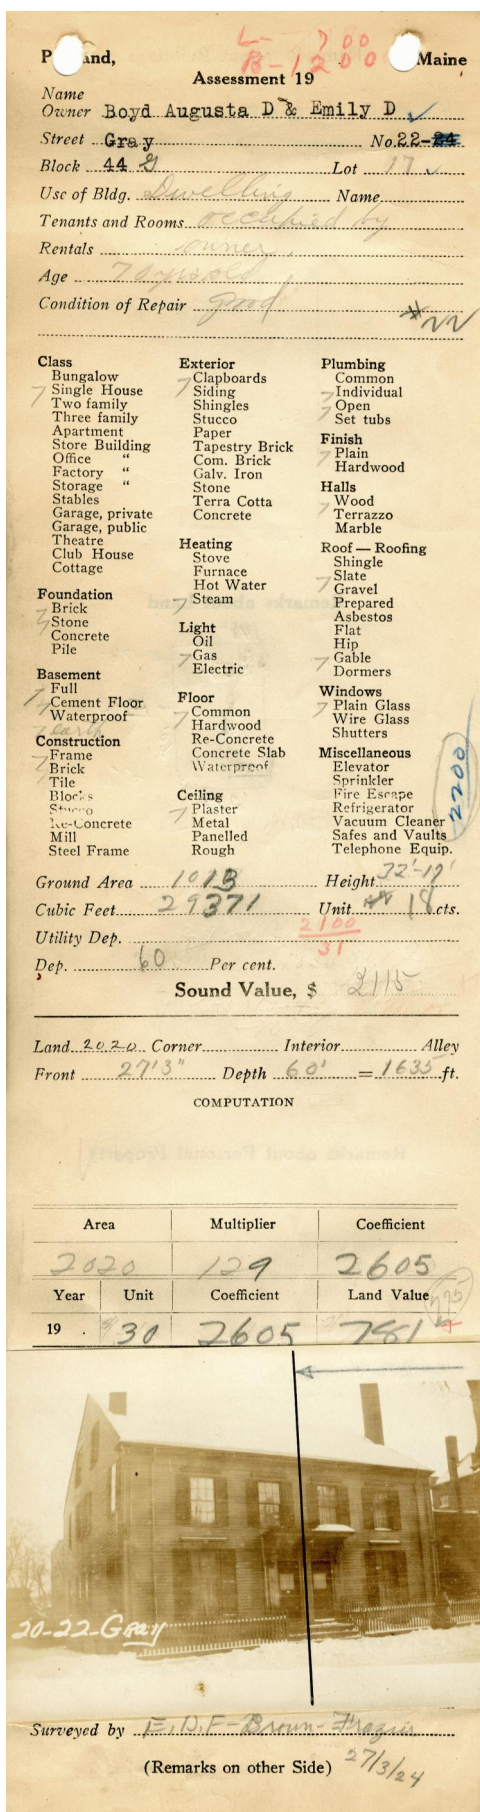 L- 700
B-1200
P nd, Maine
Assessment 19
Name
Owner Boyd Augusta D & Emily D ✓
Street Gray No. 22-24
Block 44 G Lot 17 ✓
Use of Bldg. Dwelling Name
Tenants and Rooms occupied by
Rentals owner
Age 70 yrs old
Condition of Repair good
#22
Class
Bungalow
Single House
Two family
Three family
Apartment
Store Building
Office "
Factory "
Storage "
Stables
Garage, private
Garage, public
Theatre
Club House
Cottage
Foundation
Brick
Stone
Concrete
Pile
Basement
Full
Cement Floor
Waterproof
early
Construction
Frame
Brick
Tile
Blocks
Stucco
Re-Concrete
Mill
Steel Frame
Exterior
Clapboards
Siding
Shingles
Stucco
Paper
Tapestry Brick
Com. Brick
Galv. Iron
Stone
Terra Cotta
Concrete
Heating
Stove
Furnace
Hot Water
Steam
Light
Oil
Gas
Electric
Floor
Common
Hardwood
Re-Concrete
Concrete Slab
Waterproof
Ceiling
Plaster
Metal
Panelled
Rough
Plumbing
Common
Individual
Open
Set tubs
Finish
Plain
Hardwood
Halls
Wood
Terrazzo
Marble
Roof — Roofing
Shingle
Slate
Gravel
Prepared
Asbestos
Flat
Hip
Gable
Dormers
Windows
Plain Glass
Wire Glass
Shutters
Miscellaneous
Elevator
Sprinkler
Fire Escape
Refrigerator
Vacuum Cleaner
Safes and Vaults
Telephone Equip.
2200
Ground Area 1013 Height 32'-17'
Cubic Feet 29371 Unit 18 cts.
Utility Dep. 2100
31
Dep. 60 Per cent.
Sound Value, $ 2115
Land 2020 Corner Interior Alley
Front 27'3" Depth 60' = 1635 ft.
COMPUTATION
Remarks about Personal Property
Area Multiplier Coefficient
2020 129 2605
Year Unit Coefficient Land Value
775
19 . 30 2605 781
20-22-Gray
Surveyed by E.D.F-Brown-Frazier
(Remarks on other Side) 27/3/24